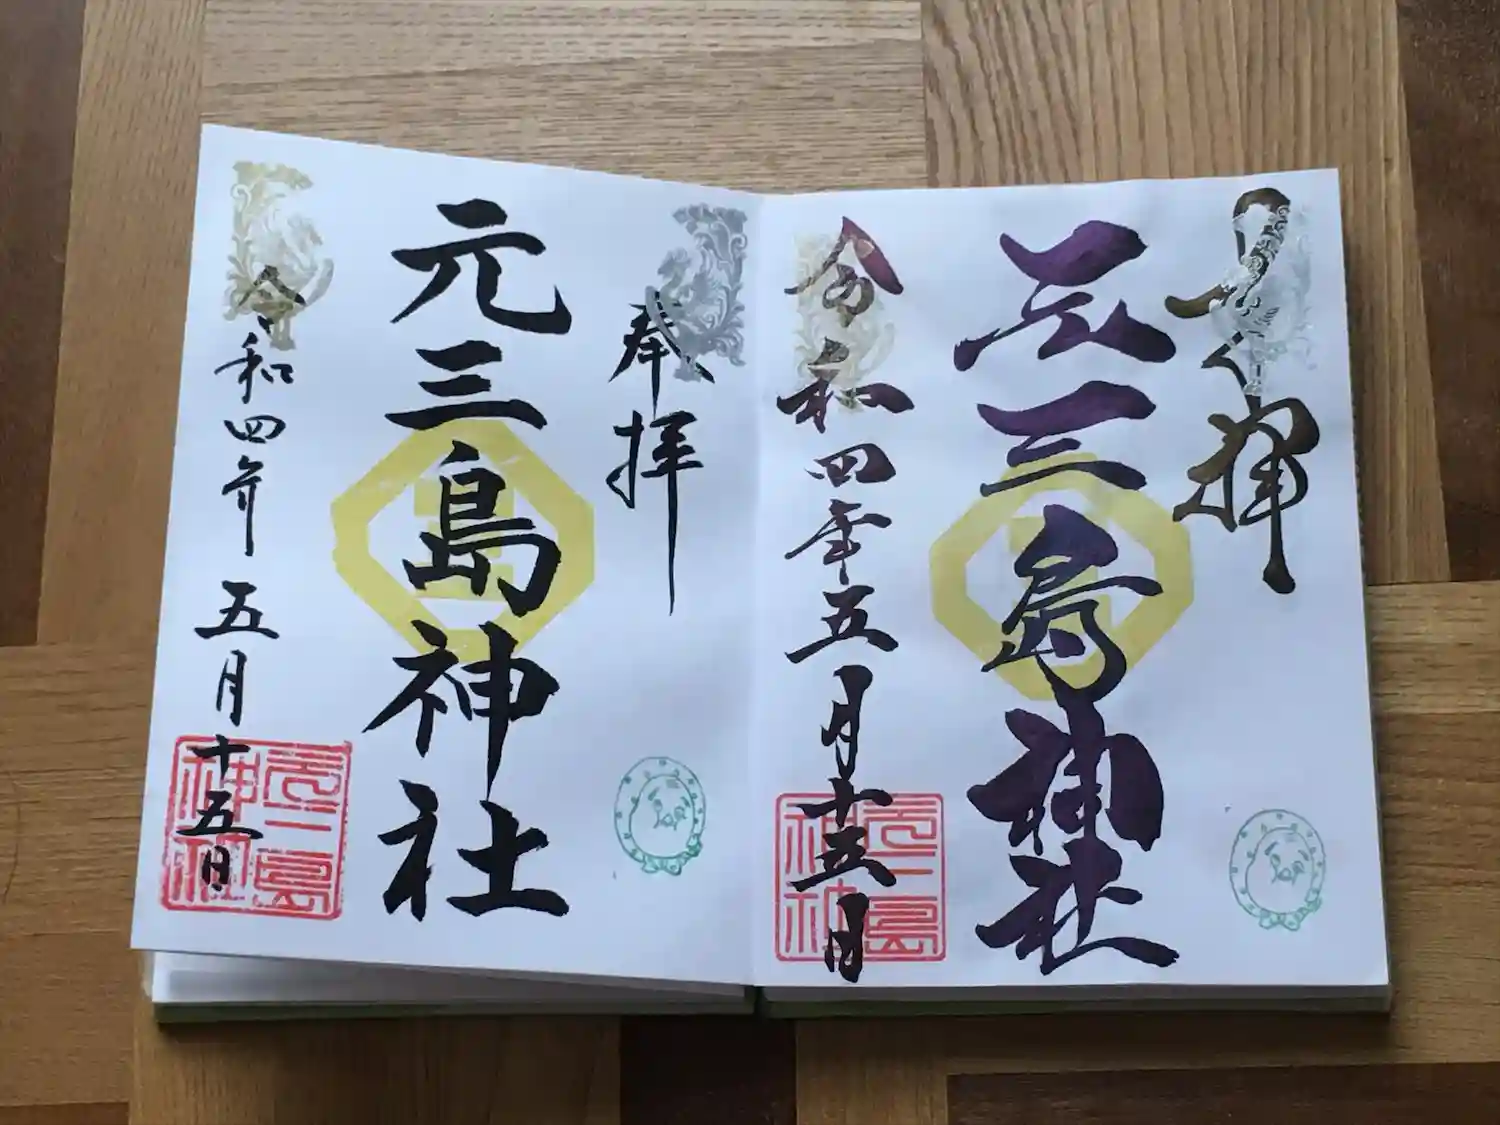 奉拝
元三島神社
令和四年五月十五日
元三島神社
奉拝
元三島神社
令和四年五月十五日
元三島神社